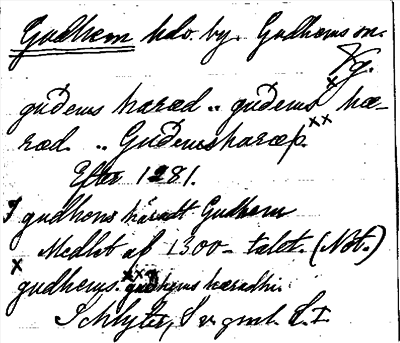 Gudhem hds. by. Gudhems sn.
Vg.
guðems haræd .. guðems x hæ-
ræd. .. Guðemshæræþ. xx
Efter 1281.
I gudhems häradt Gudhem
Medlet af 1300-talet. (Not.)
x gudhems. xxx gudhems hæradhi
Schlyter, Sv. gml. L. I.